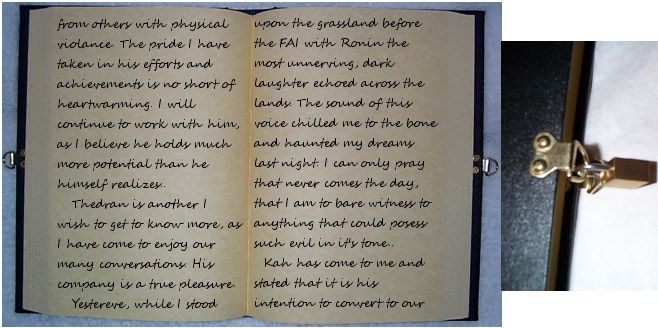 from others with physical
violance. The pride I have
taken in his efforts and
achievements is no short of
heartwarming. I will
continue to work with him,
as I believe he holds much
more potential than he
himself realizes..
Thedran is another I
wish to get to know more, as
I have come to enjoy our
many conversations. His
company is a true pleasure.
Yestereve, while I stood
upon the grassland before
the FAI with Ronin the
most unnerving, dark
laughter echoed across the
lands. The sound of this
voice chilled me to the bone
and haunted my dreams
last night. I can only pray
that never comes the day,
that I am to bare witness to
anything that could posess
such evil in it's tone..
Kah has come to me and
stated that it is his
intention to convert to our